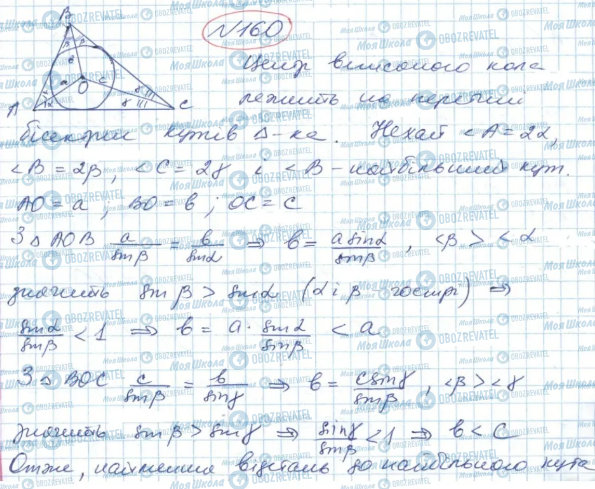 №160
Центр вписаного кола
лежить на перетині
бісектрис кутів Δ-ка. Нехай <A = 2α,
<B = 2β, <C = 2γ і <B - найбільший кут.
AO = a; BO = b; OC = c
З Δ AOB a/sinβ = b/sinα ⇒ b = a sinα/sinβ, <β > <α
значить sinβ > sinα (α і β гострі) ⇒
sinα/sinβ < 1 ⇒ b = a · sinα/sinβ < a
З Δ BOC c/sinβ = b/sinγ ⇒ b = c sinγ/sinβ, <β > <γ
значить sinβ > sinγ ⇒ sinγ/sinβ < 1 ⇒ b < c
Отже, найменша відстань до найбільшого кута